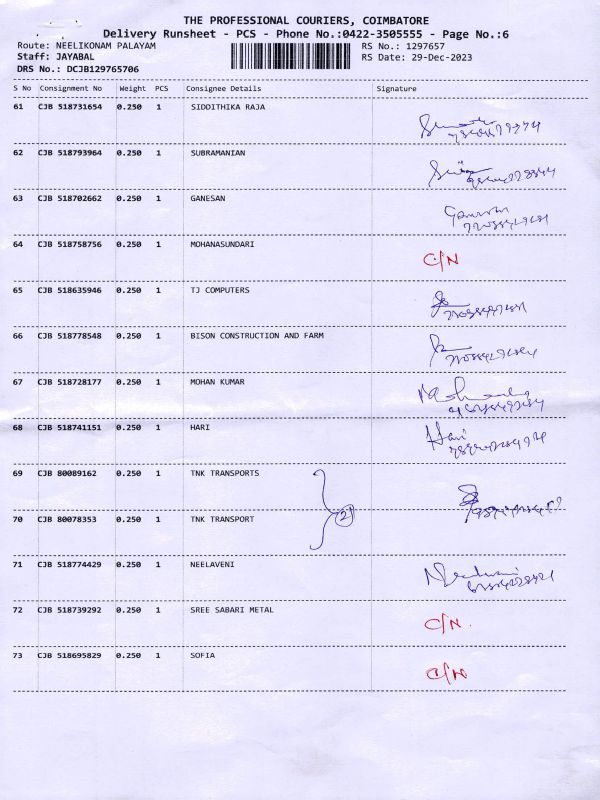 THE PROFESSIONAL COURIERS, COIMBATORE
Delivery Runsheet - PCS - Phone No.:0422-3505555 - Page No.:6
Route: NEELIKONAM PALAYAM RS No.: 1297657
Staff: JAYABAL RS Date: 29-Dec-2023
DRS No.: DCJB129765706
S No Consignment No Weight PCS Consignee Details Signature
61 CJB 518731654 0.250 1 SIDDITHIKA RAJA
62 CJB 518793964 0.250 1 SUBRAMANIAN
63 CJB 518702662 0.250 1 GANESAN
64 CJB 518758756 0.250 1 MOHANASUNDARI C/N
65 CJB 518635946 0.250 1 TJ COMPUTERS
66 CJB 518778548 0.250 1 BISON CONSTRUCTION AND FARM
67 CJB 518728177 0.250 1 MOHAN KUMAR
68 CJB 518741151 0.250 1 HARI Hari
69 CJB 80089162 0.250 1 TNK TRANSPORTS
2
70 CJB 80078353 0.250 1 TNK TRANSPORT
71 CJB 518774429 0.250 1 NEELAVENI
72 CJB 518739292 0.250 1 SREE SABARI METAL C/N.
73 CJB 518695829 0.250 1 SOFIA C/N